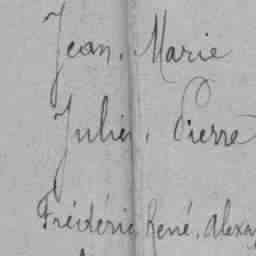 Jean, Marie
Julien, Pierre
Frédéric, René, Alexa